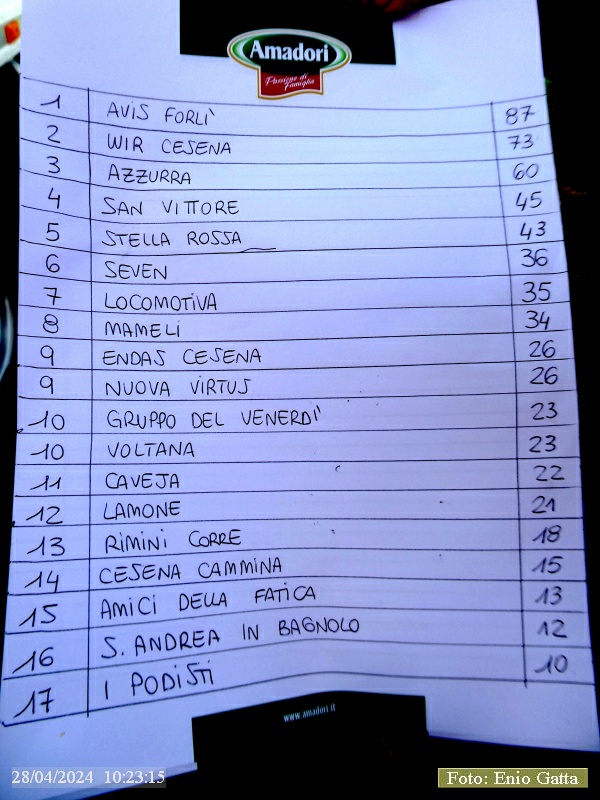 Amadori
Passione di
Famiglia
1 AVIS FORLÌ 87
2 WIR CESENA 73
3 AZZURRA 60
4 SAN VITTORE 45
5 STELLA ROSSA 43
6 SEVEN 36
7 LOCOMOTIVA 35
8 MAMELI 34
9 ENDAS CESENA 26
9 NUOVA VIRTUS 26
10 GRUPPO DEL VENERDÌ 23
10 VOLTANA 23
11 CAVEJA 22
12 LAMONE 21
13 RIMINI CORRE 18
14 CESENA CAMMINA 15
15 AMICI DELLA FATICA 13
16 S. ANDREA IN BAGNOLO 12
17 I PODISTI 10
www.amadori.it
28/04/2024 10:23:15
Foto: Enio Gatta